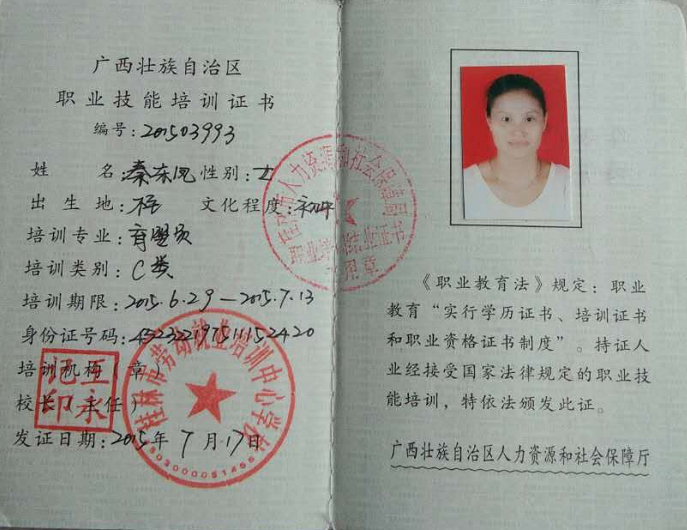 广西壮族自治区
职业技能培训证书
编号:201503993
姓名:秦东凤 性别:女
出生地: 文化程度:初中
培训专业:育婴员
培训类别:C类
培训期限:2015.6.29—2015.7.13
身份证号码:
培训机构(章)
校长(主任)
发证日期:2015年7月17日
桂林市劳动就业培训中心学校
王永
记印
桂林市人力资源和社会保障局
职业培训结业证书
专用章
《职业教育法》规定:职业
教育“实行学历证书、培训证书
和职业资格证书制度”。持证人
业经接受国家法律规定的职业技
能培训,特依法颁发此证。
广西壮族自治区人力资源和社会保障厅